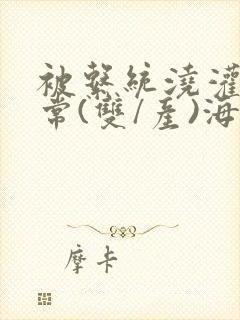 被系統澆灌
常(雙/產)海
摩卡